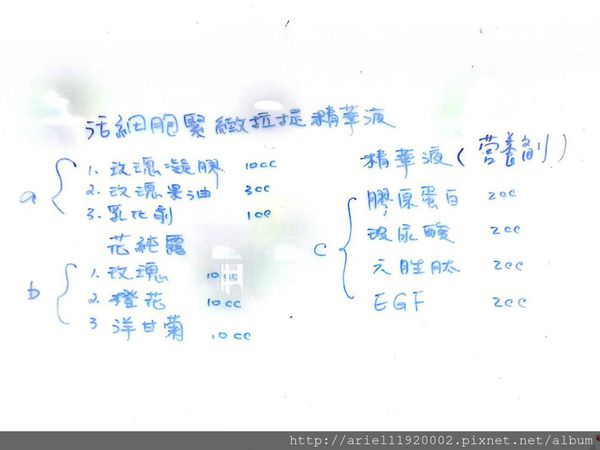 活細胞緊緻拉提精華液
a
1. 玫瑰凝膠 10cc
2. 玫瑰果油 3cc
3. 乳化劑 1cc
花純露
b
1. 玫瑰 10cc
2. 橙花 10cc
3 洋甘菊 10cc
精華液(营養劑)
c
膠原蛋白 2cc
玻尿酸 2cc
六胜肽 2cc
EGF 2cc
http://ariel11920002.pixnet.net/album